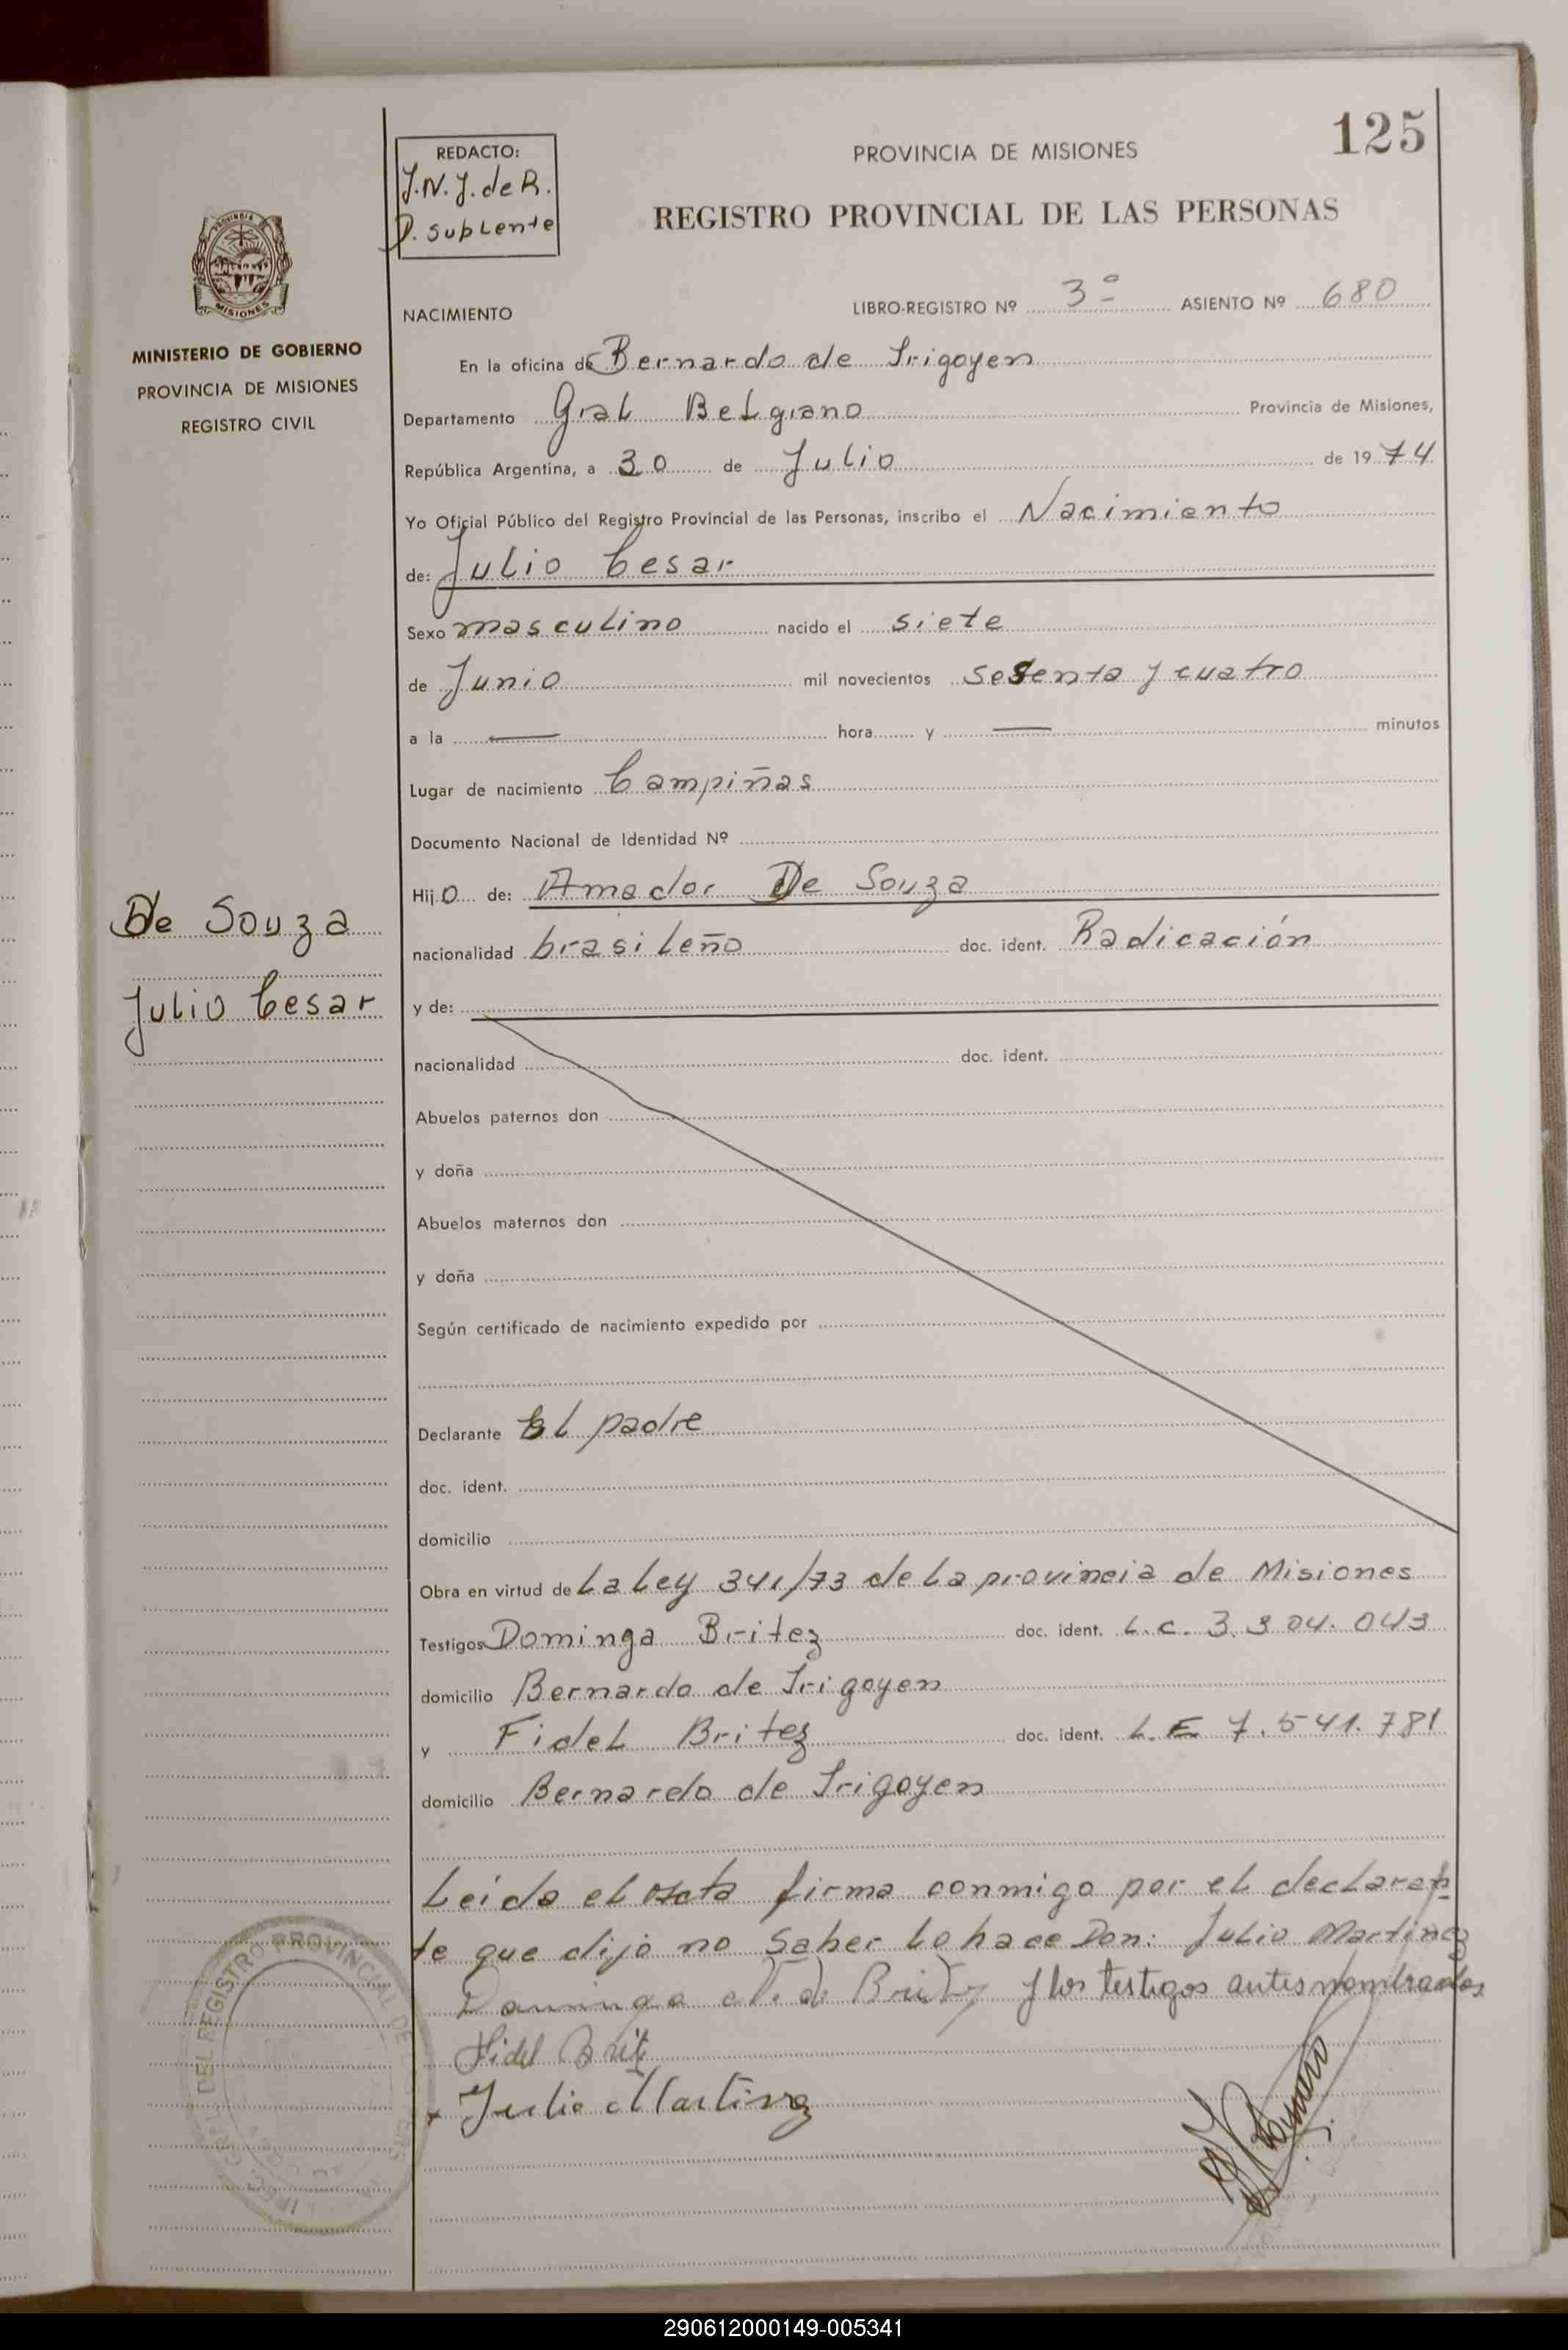 125
REDACTO:
J.N.J. de R.
D. suplente
PROVINCIA DE MISIONES
REGISTRO PROVINCIAL DE LAS PERSONAS
PROVINCIA
MISIONES
MINISTERIO DE GOBIERNO
PROVINCIA DE MISIONES
REGISTRO CIVIL
De Souza
Julio Cesar
NACIMIENTO LIBRO-REGISTRO Nº 3º ASIENTO Nº 680
En la oficina de Bernardo de Irigoyen
Departamento Gral Belgrano Provincia de Misiones,
República Argentina, a 30 de Julio de 1974
Yo Oficial Público del Registro Provincial de las Personas, inscribo el Nacimiento
de: Julio Cesar
Sexo masculino nacido el siete
de Junio mil novecientos sesenta y cuatro
a la — hora y — minutos
Lugar de nacimiento Campiñas
Documento Nacional de Identidad Nº
Hijo de: Amador De Souza
nacionalidad brasileño doc. ident. Radicación
y de:
nacionalidad doc. ident.
Abuelos paternos don
y doña
Abuelos maternos don
y doña
Según certificado de nacimiento expedido por
Declarante El padre
doc. ident.
domicilio
Obra en virtud de La Ley 341/73 de la provincia de Misiones
Testigos Dominga Britez doc. ident. L.C. 3.304.043
domicilio Bernardo de Irigoyen
y Fidel Britez doc. ident. L.E 7.541.781
domicilio Bernardo de Irigoyen
Leida el acta firma conmigo por el declaran
te que dijo no saber lo hace Don: Julio Martinez
Dominga de Britez y los testigos antes nombrados
Fidel Brit
x Julio Martinez
DEL REGISTRO PROVINCIAL DE
290612000149-005341